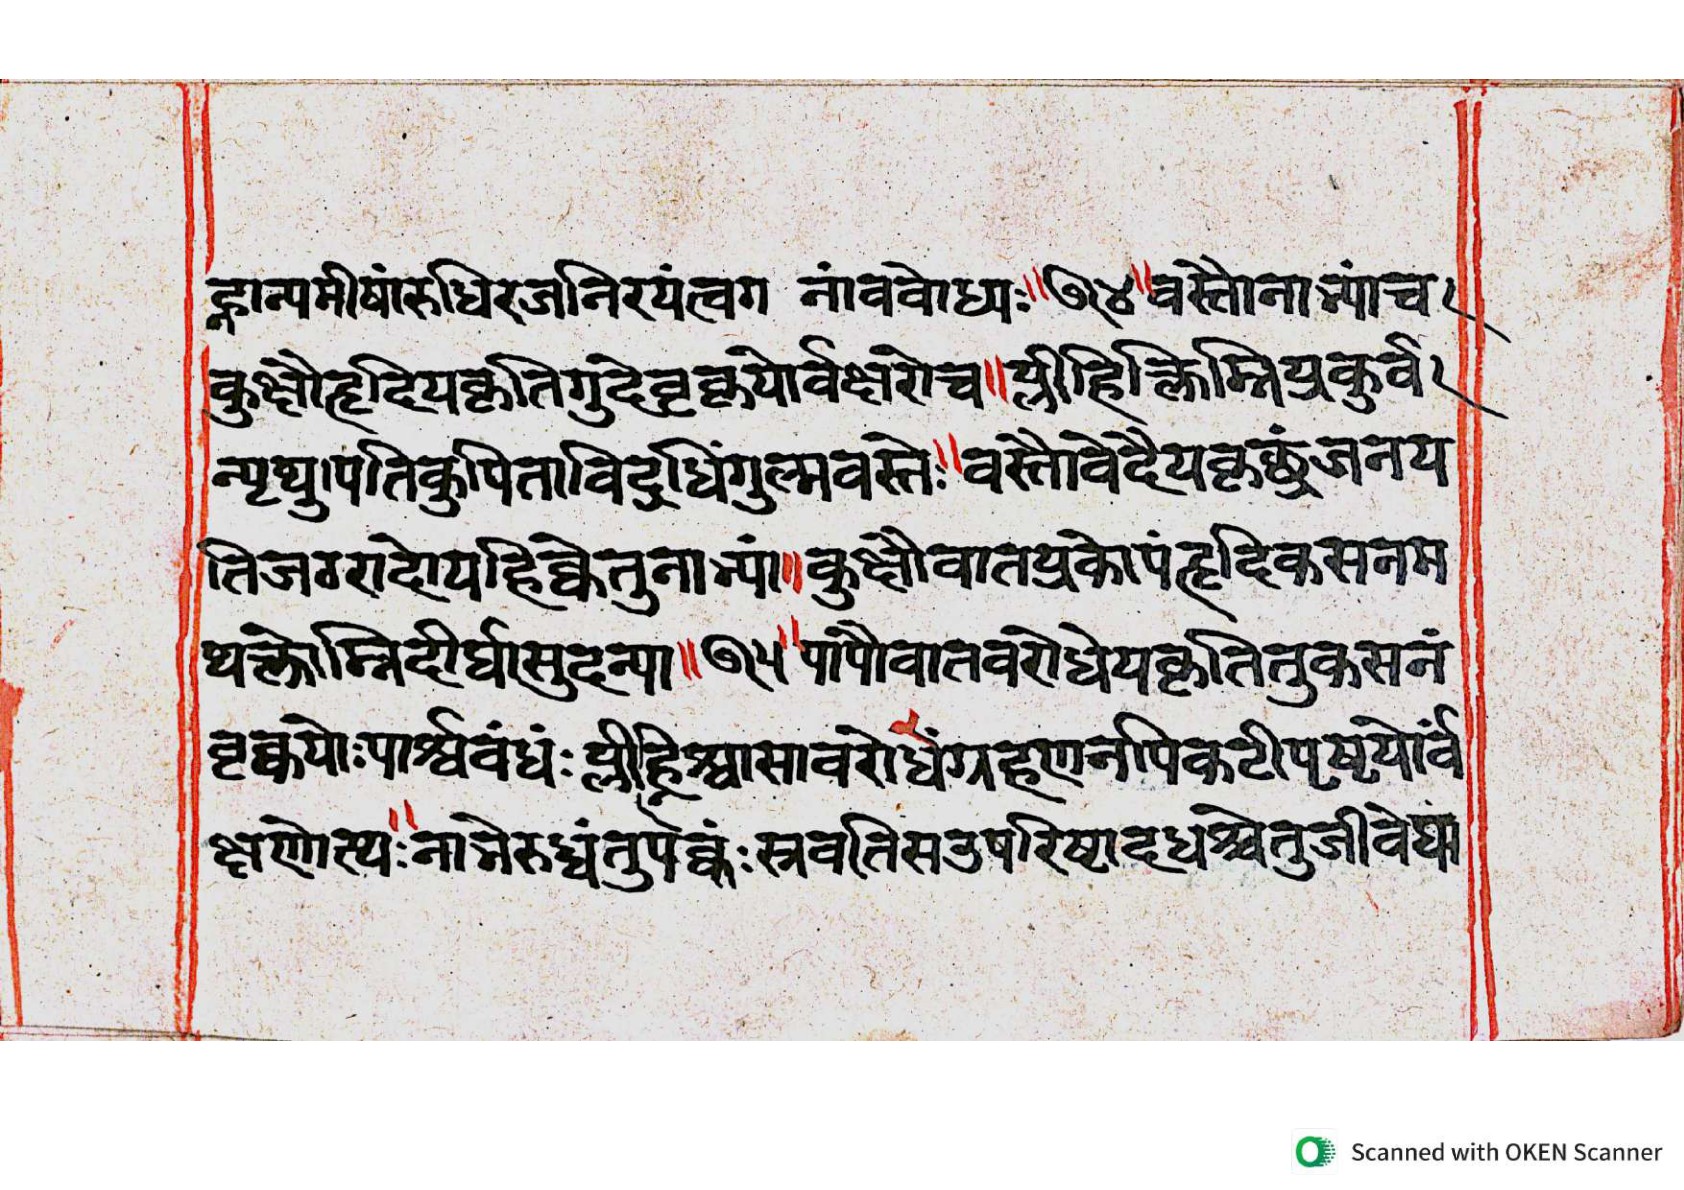 ह्नान्यमीषांरुधिरजनिरयंत्वग नांववोध्यः॥७४॥वस्तौनाभ्यांच।
कुक्षौहृदियकृतिगुदेवृक्कयोर्वक्षरोच॥प्लीह्निक्लोम्निप्रकुर्व।
न्पृथु।पतिकुपिताविद्रधिंगुल्मवस्तेः॥वस्तौवेदैयकृछ्रंजनय
तिजठरादोयहिक्केतुनाभ्यां॥कुक्षौवातप्रकोपंहृदिकसनम
थक्लोम्निदीर्घासुदन्या॥७५॥पांपौवातवरोधेयकृतितुकसनं
वृक्कयोःपार्श्ववंधंःप्लीह्निश्वासावरोधंग्रहणर्नापिकटीपृष्टयोर्व
क्षणोत्थःनाभेरुर्ध्वंतुपक्वंःस्त्रवतिसउपरिष्टादधश्चेतुजीवेद्या
Scanned with OKEN Scanner